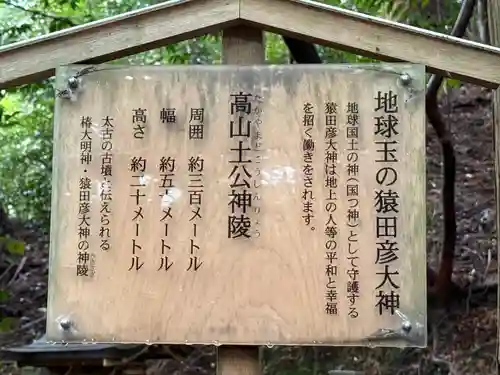 地球玉の猿田彦大神
地球国土の神（国つ神）として守護する
猿田彦大神は地上の人等の平和と幸福
を招く働きをされます。
高山土公神陵
たかやまどこうしんりょう
周囲　約三百メートル
幅　約五十メートル
高さ　約二十メートル
太古の古墳と伝えられる
椿大明神・猿田彦大神の神陵